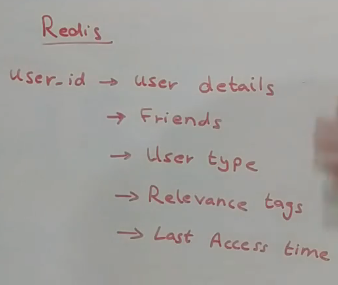 Redis
user_id → user details
→ Friends
→ User type
→ Relevance tags
→ Last Access time